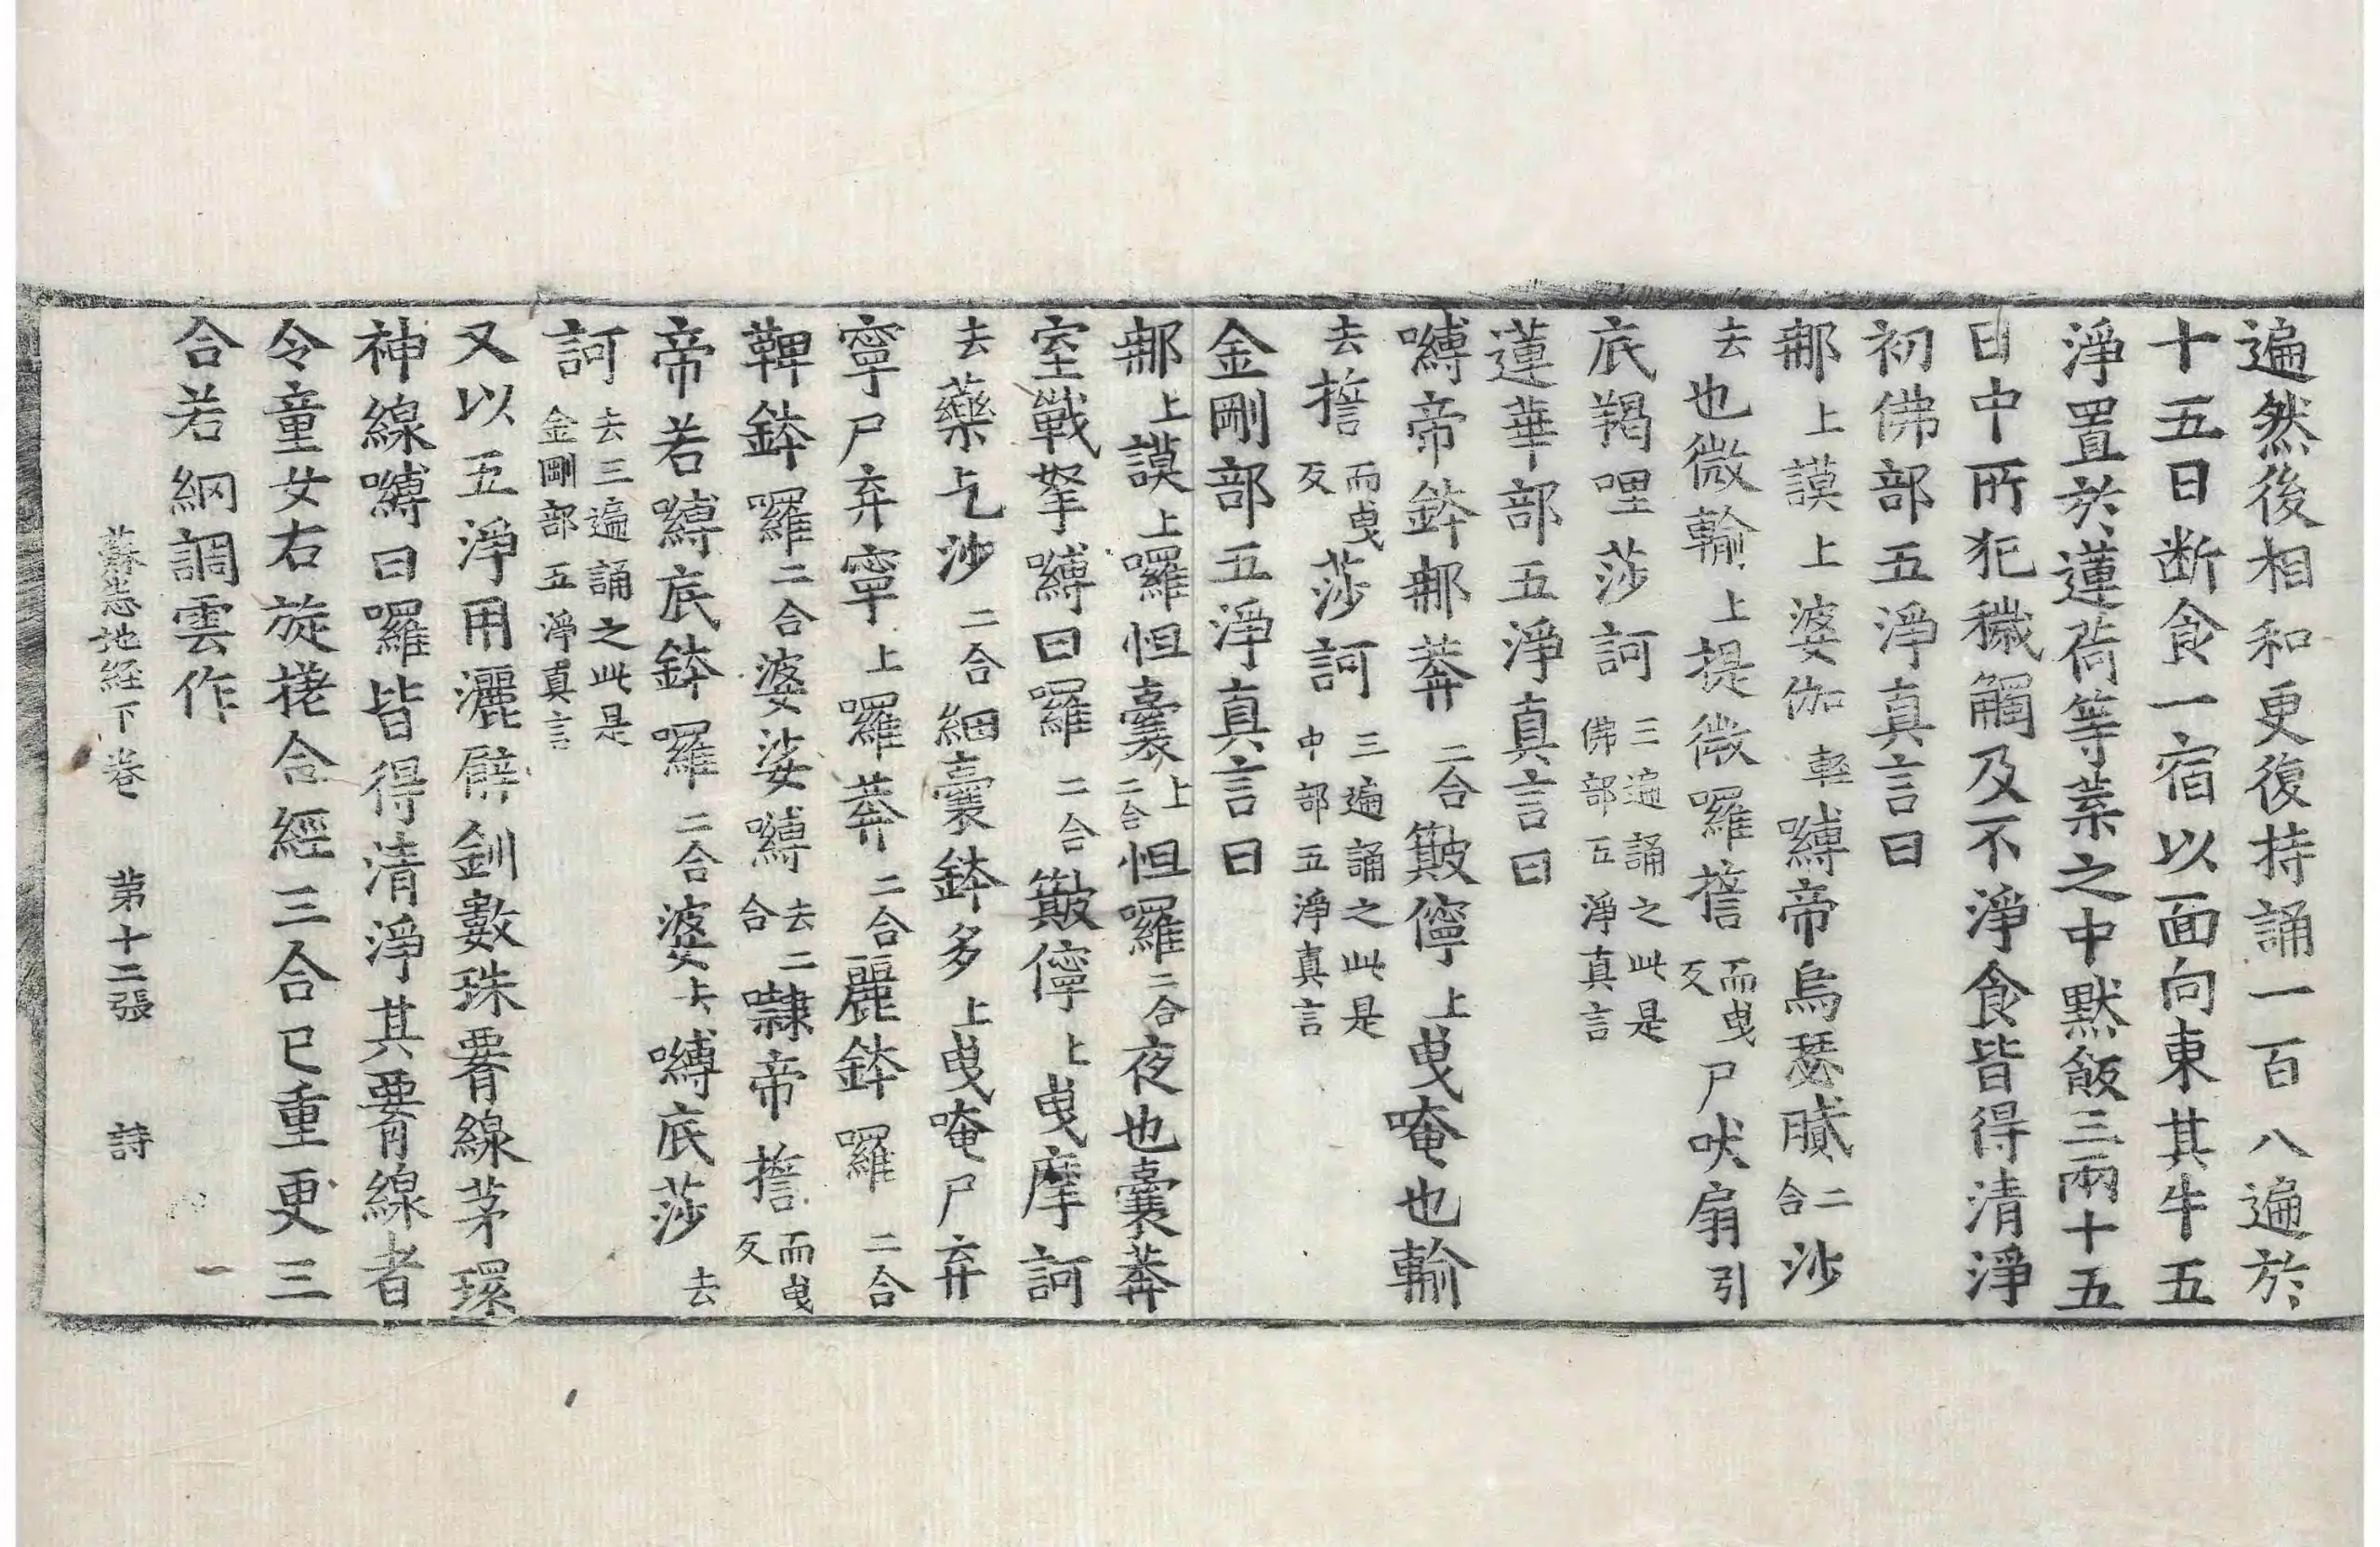 遍然後相和更復持誦一百八遍於
十五日断食一宿以面向東其牛五
淨置於蓮荷等葉之中黙飯三兩十五
日中所犯穢觸及不淨食皆得清淨
初佛部五淨真言曰
那上謨上婆伽輕嚩帝烏瑟膩二合沙
去也微輸上提微囉擔而曳反尸吠扇引
底羯哩莎訶三遍誦之此是佛部五淨真言
蓮華部五淨真言曰
嚩帝鉢那莽二合皽儜上曳唵也輸
去擔而曳反莎訶三遍誦之此是中部五淨真言
金剛部五淨真言曰
那上謨上囉怛囊上二合怛囉二合夜也囊莽
室戰拏嚩曰囉二合皽儜上曳摩訶
去藥乞沙二合細囊鉢多上曳唵尸弃
寧尸弃寧上囉莽二合麗鉢囉二合
鞞鉢囉二合婆娑嚩去二合隸帝擔而曳反
帝若嚩底鉢囉二合婆去嚩底莎去
訶去三遍誦之此是金剛部五淨真言
又以五淨用灑臂釧數珠要線茅環
神線嚩曰囉皆得清淨其要線者
令童女右旋搓合經三合已重更三
合若細調雲作
蘇悉地経下巻　第十二張　詩